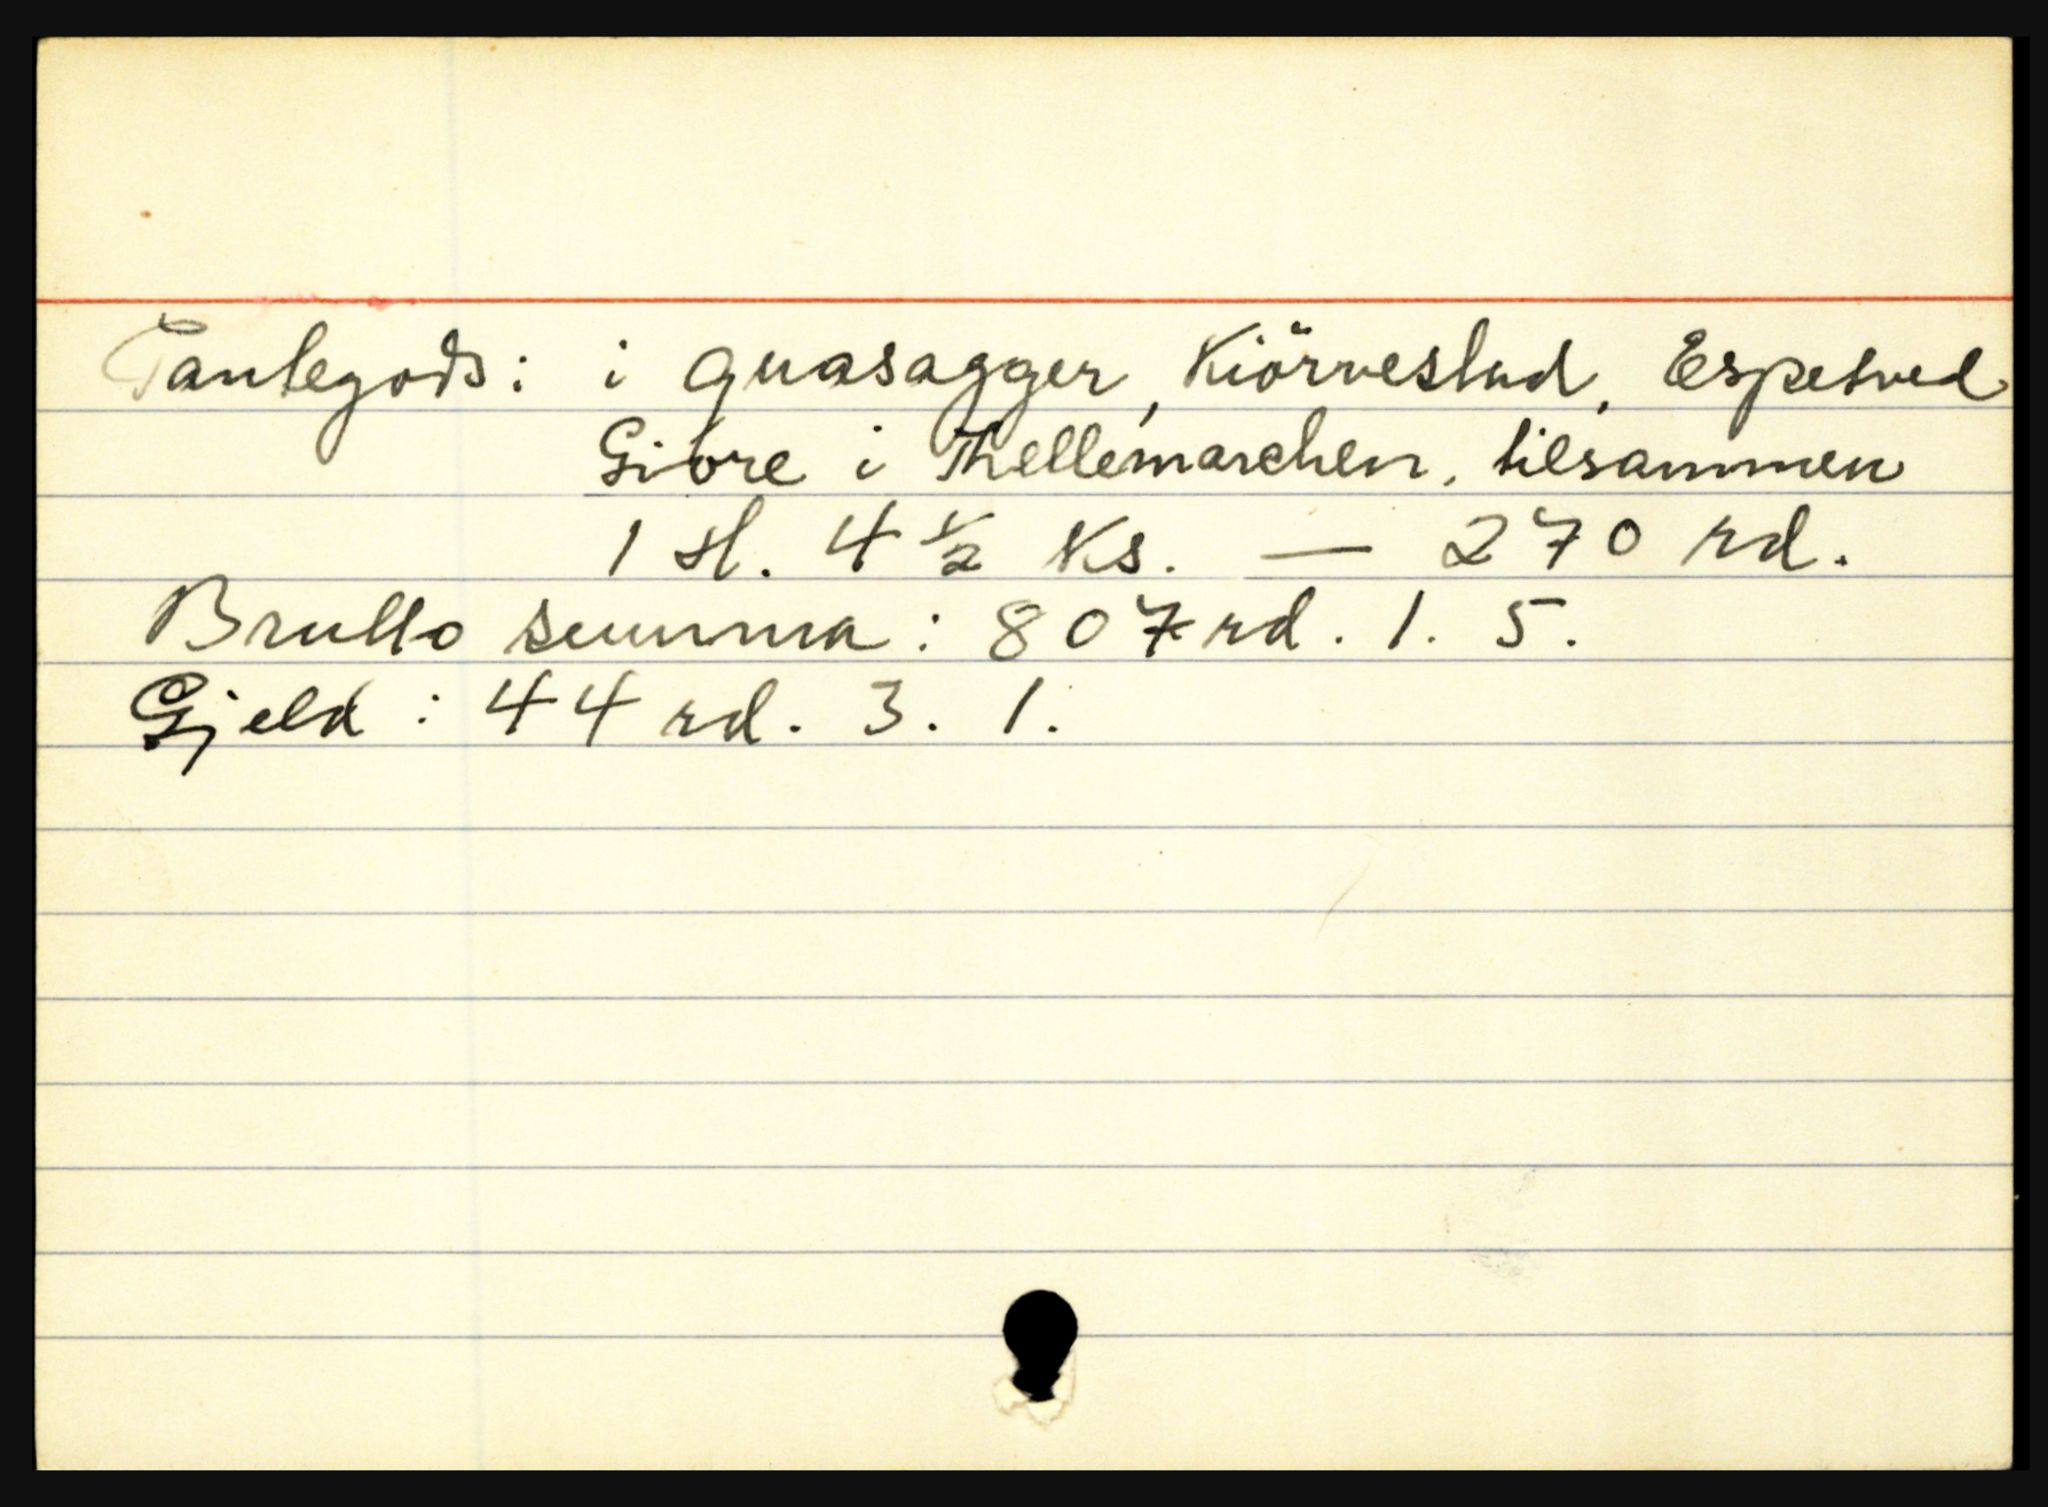 Pantegods: i Quasagger, Kiörvestad, Espetved
Givre i Thellemarchen, tilsammen
1 sl. 4 ½ Ks. — 270 rd.
Brutto summa: 807 rd. 1. 5.
Gjeld: 44 rd. 3. 1.